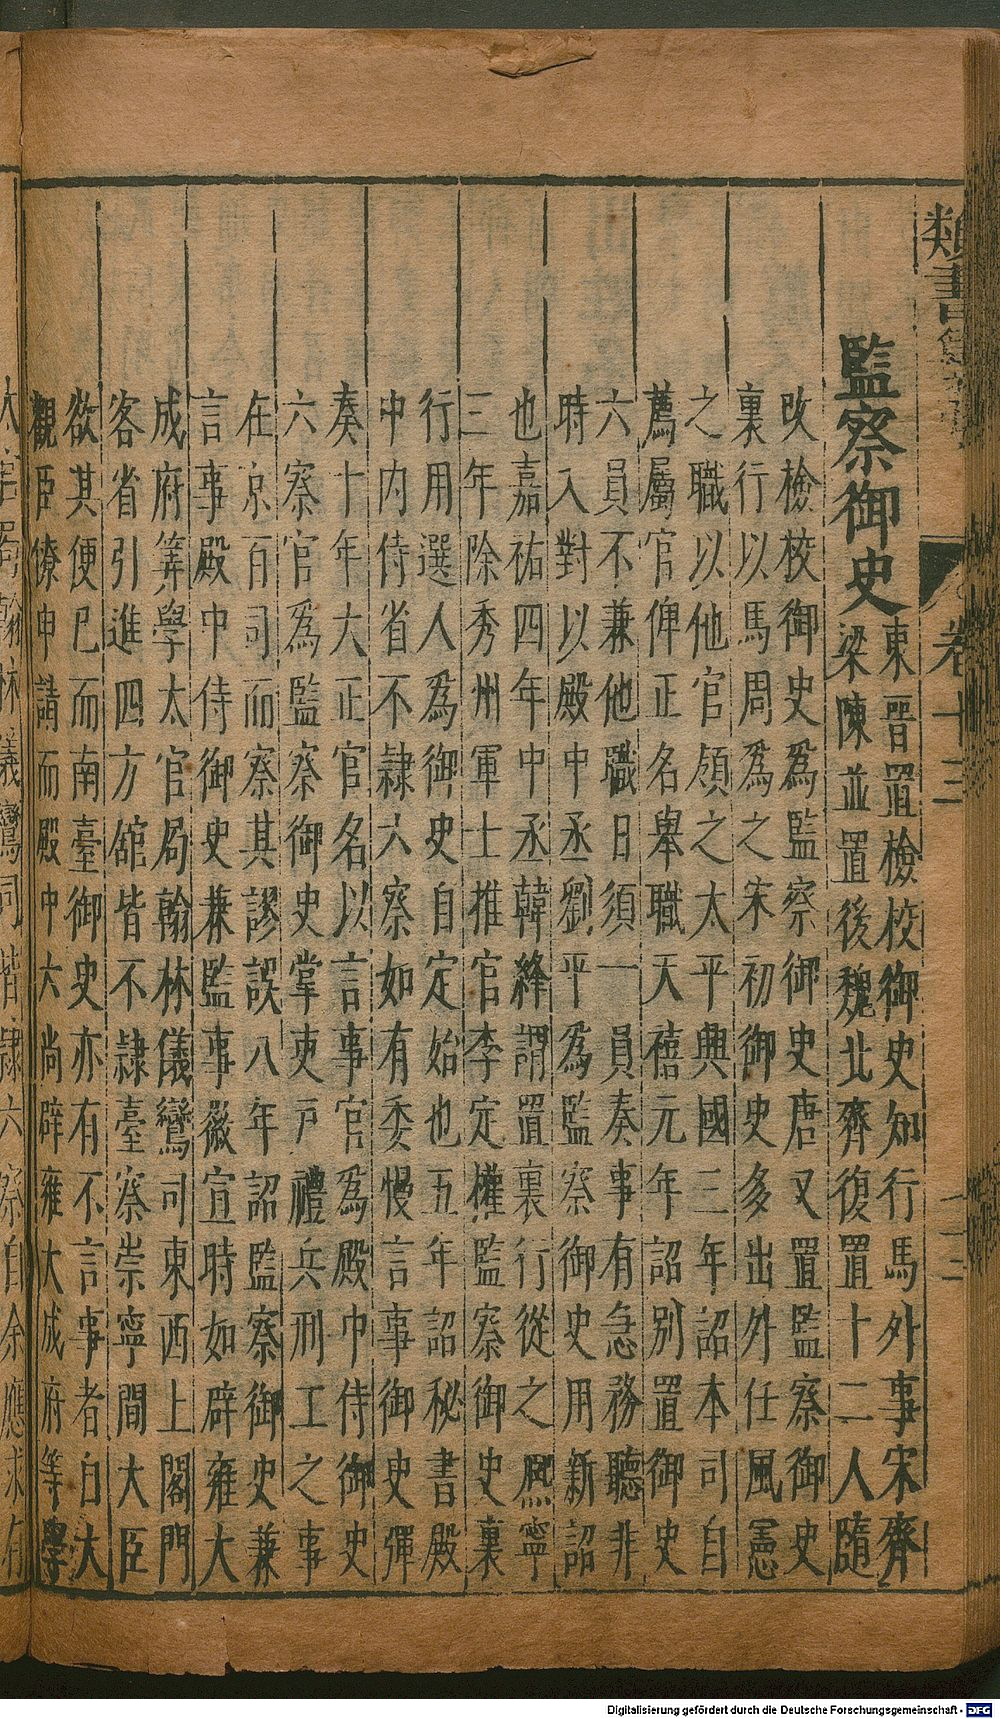 類書
卷十三
監察御史
東晉置檢校御史知行馬外事宋齊
梁陳並置後魏北齊復置十二人隨
改檢校御史為監察御史唐又置監察御史
裏行以馬周為之宋初御史多出外任風憲
之職以他官領之太平興國三年詔本司自
薦屬官俾正名舉職天禧元年詔別置御史
六員不兼他職日須一員奏事有急務聽非
時入對以殿中丞劉平為監察御史用新詔
也嘉祐四年中丞韓絳謂置裏行從之熈寧
三年除秀州軍士推官李定權監察御史裏
行用選人為御史自定始也五年詔秘書殿
中內侍省不隷六察如有委慢言事御史彈
奏十年大正官名以言事官為殿中侍御史
六察官為監察御史掌吏戶禮兵刑工之事
在京百司而察其謬誤八年詔監察御史兼
言事殿中侍御史兼監事薇宣時如辟雍大
成府筭學太官局翰林儀鸞司東西上閣門
客省引進四方舘皆不隷臺察崇寧間大臣
欲其便已而南臺御史亦有不言事者自大
觀臣僚申請而殿中六尚辟雍大成府等學
太官局翰林儀鸞司皆隷六察自余應求有
Digitalisierung gefördert durch die Deutsche Forschungsgemeinschaft - DFG